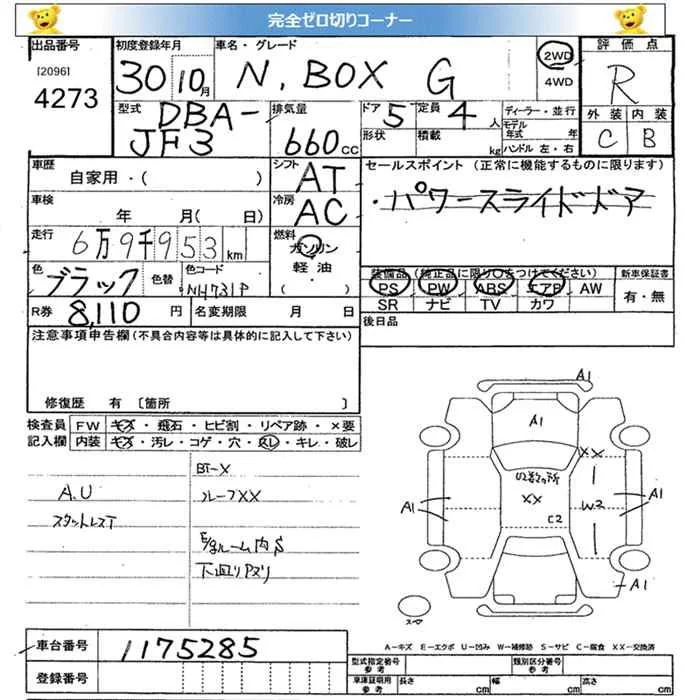 完全ゼロ切りコーナー
出品番号
[2096]
4273
初度登録年月
30 10月
車名・グレード
N.BOX G
2WD
4WD
評価点
R
外装 内装
C B
型式
DBA-
JF3
排気量
660cc
ドア 5
形状
定員 4人
積載 kg
ディーラー・並行
モデル年式 年
ハンドル 左・右
車歴
自家用・( )
車検
年 月( 日)
走行
6万9千953km
色
ブラック
色替
色コード
NH731P
R券 8,110円
名変期限 月 日
シフト
AT
冷房
AC
燃料
ガソリン
軽油
・( )
セールスポイント (正常に機能するものに限ります)
・パワースライドドア
装備品(純正品に限り○をつけてください)
新車保証書
PS PW ABS エアB AW
SR ナビ TV カワ
有・無
後日品
注意事項申告欄(不具合内容等は具体的に記入して下さい)
修復歴 有 〔箇所 〕
検査員記入欄
FW キズ・飛石・ヒビ割・リペア跡・×要
内装 キズ・汚レ・コゲ・穴・スレ・キレ・破レ
A.U
スタットレスT
BT-X
ルーフXX
E/gルーム内S
下廻りサビ
A1
A1
XX
U2数ヶ所
XX
C2
W2
A1
A1
A1
スペア
A-キズ E-エクボ U-凹み W-補修跡 S-サビ C-腐食 XX-交換済
車台番号 1175285
登録番号
型式指定番号 参考
類別区分番号 参考
車庫証明用 参考
長さ cm 幅 cm 高さ cm